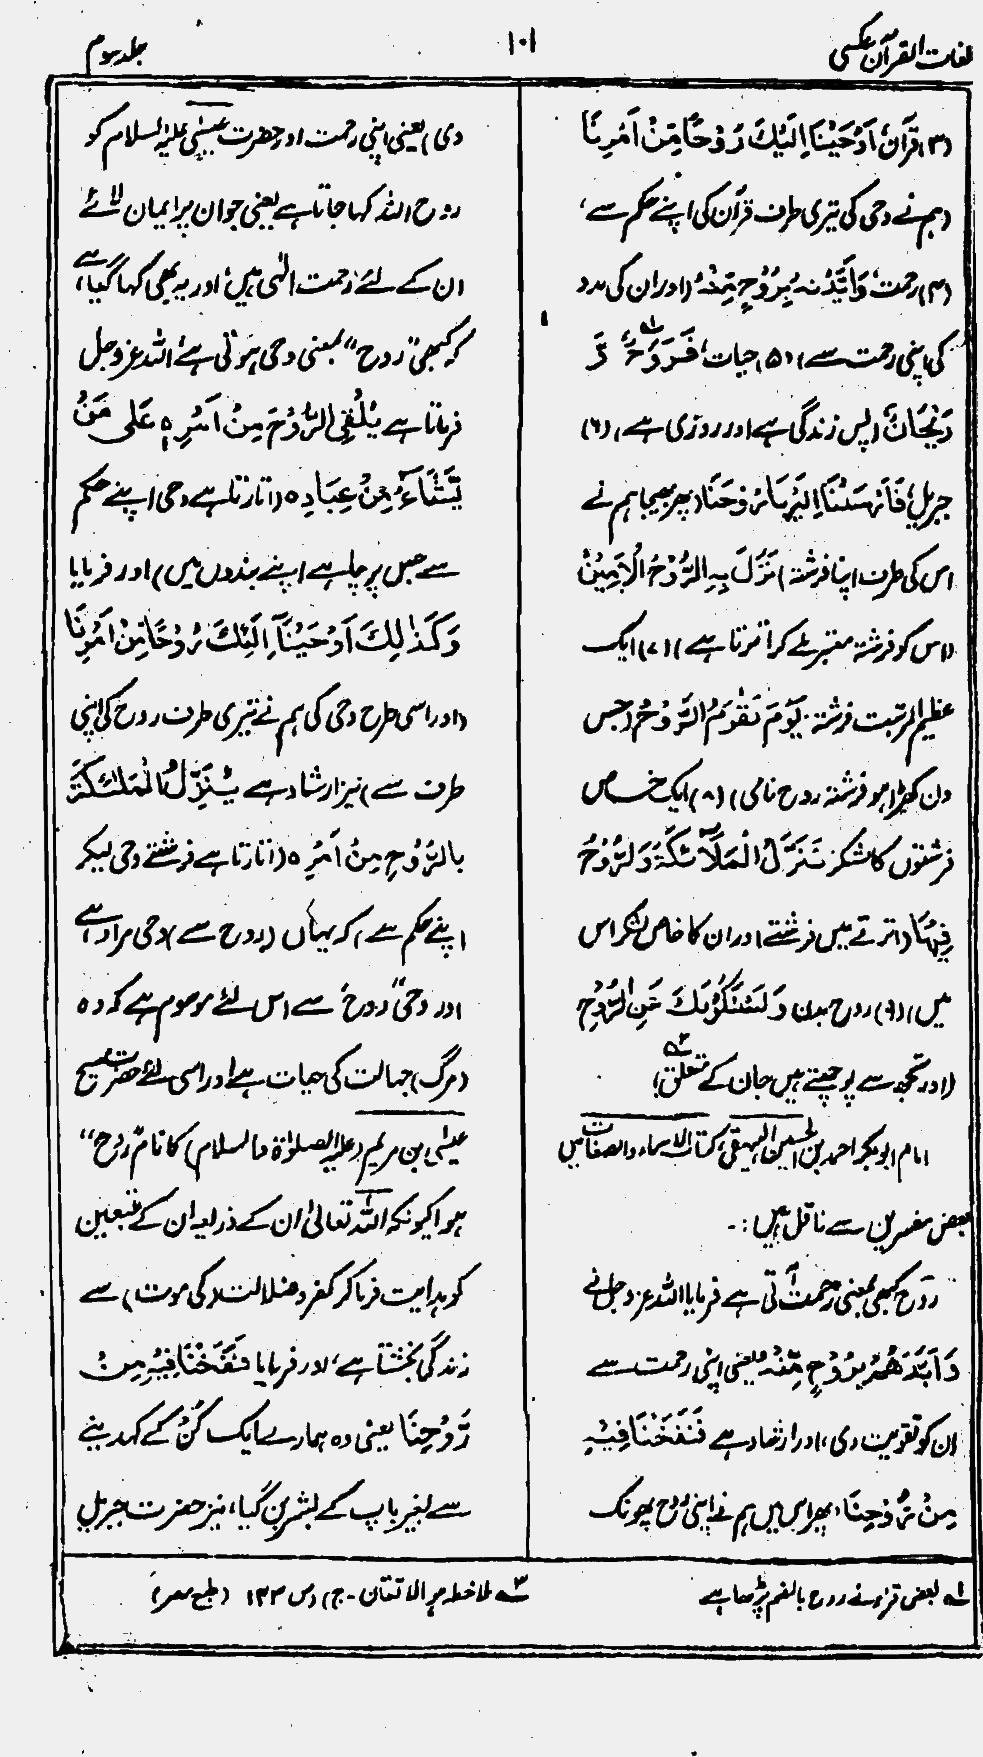 لغات القرآن عکسی
۱۰۱
جلد سوم
(۳) قرآن، اَوْحَيْنَا اِلَيْكَ رُوْحًا مِّنْ اَمْرِنَا
(ہم نے وحی کی تیری طرف قرآن کی اپنے حکم سے،
(۴) رحمت، وَاَيَّدَهُمْ بِرُوْحٍ مِّنْهُ (اور ان کی مدد
کی اپنی رحمت سے) (۵) حیات، فَرَوْحٌ لہ وَّ
رَيْحَانٌ (پس زندگی ہے اور روزی ہے، (۶)
جبریل، فَاَرْسَلْنَا اِلَيْهَا رُوْحَنَا (پھر بھیجا ہم نے
اس کی طرف اپنا فرشتہ) نَزَلَ بِهِ الرُّوْحُ الْاَمِيْنُ
(اس کو فرشتہ معتبر لے کر اترتا ہے) (۷) ایک
عظیم المرتبت فرشتہ، يَوْمَ يَقُوْمُ الرُّوْحُ (جس
دن کھڑا ہو فرشتہ روح نامی) (۸) ایک خاص
فرشتوں کا لشکر تَنَزَّلُ الْمَلَآئِكَةُ وَالرُّوْحُ
فِيْهَا (اترتے ہیں فرشتے اور ان کا خاص لشکر اس
میں) (۹) روح بدن وَيَسْئَلُوْنَكَ عَنِ الرُّوْحِ
(اور تجھ سے پوچھتے ہیں جان کے متعلق) ۲ہ
امام ابوبکر احمد بن الحسین البیہقی، کتاب الاسماء والصفات میں
بعض مفسرین سے ناقل ہیں :-
روح کبھی بمعنی رحمت آتی ہے فرمایا اللہ عزوجل نے
وَاَيَّدَهُمْ بِرُوْحٍ مِّنْهُ یعنی اپنی رحمت سے
ان کو تقویت دی، اور ارشاد ہے فَنَفَخْنَا فِيْهِ
مِنْ رُّوْحِنَا، پھر اس میں ہم نے اپنی روح پھونک
دی) یعنی اپنی رحمت اور حضرت عیسیٰ علیہ السلام کو
روح اللہ کہا جاتا ہے یعنی جو ان پر ایمان لائے
ان کے لئے رحمت الٰہی ہیں، اور یہ بھی کہا گیا ہے،
کہ کبھی "روح" بمعنی وحی ہوتی ہے، اللہ عزوجل
فرماتا ہے يُلْقِى الرُّوْحَ مِنْ اَمْرِهٖ عَلٰى مَنْ
يَّشَآءُ مِنْ عِبَادِهٖ (اتارتا ہے وحی اپنے حکم
سے جس پر چاہے اپنے بندوں میں) اور فرمایا
وَكَذٰلِكَ اَوْحَيْنَآ اِلَيْكَ رُوْحًا مِّنْ اَمْرِنَا
(اور اسی طرح وحی کی ہم نے تیری طرف روح کی اپنی
طرف سے) نیز ارشاد ہے يُنَزِّلُ الْمَلٰٓئِكَةَ
بِالرُّوْحِ مِنْ اَمْرِهٖ (اتارتا ہے فرشتے وحی لیکر
اپنے حکم سے) کہ یہاں (روح سے) وحی مراد ہے
اور وحی "روح" سے اس لئے موسوم ہے کہ وہ
(مرگ) جہالت کی حیات ہے اور اسی لئے حضرت مسیح
عیسیٰ بن مریم (علیہ الصلوٰة والسلام) کا نام "روح"
ہوا کیونکہ اللہ تعالیٰ ان کے ذریعہ ان کے متبعین
کو ہدایت فرما کر کفر و ضلالت (کی موت) سے
زندگی بخشتا ہے، اور فرمایا فَنَفَخْنَا فِيْهِ مِنْ
رُّوْحِنَا یعنی وہ ہمارے ایک کُن کے کہہ دینے
سے بغیر باپ کے بشر بن گیا، نیز حضرت جبریل
۱ہ بعض قراء نے روح بالضم پڑھا ہے
۲ہ ملاحظہ ہو الاتقان - ج ۱ ص ۱۴۳ (طبع مصر)